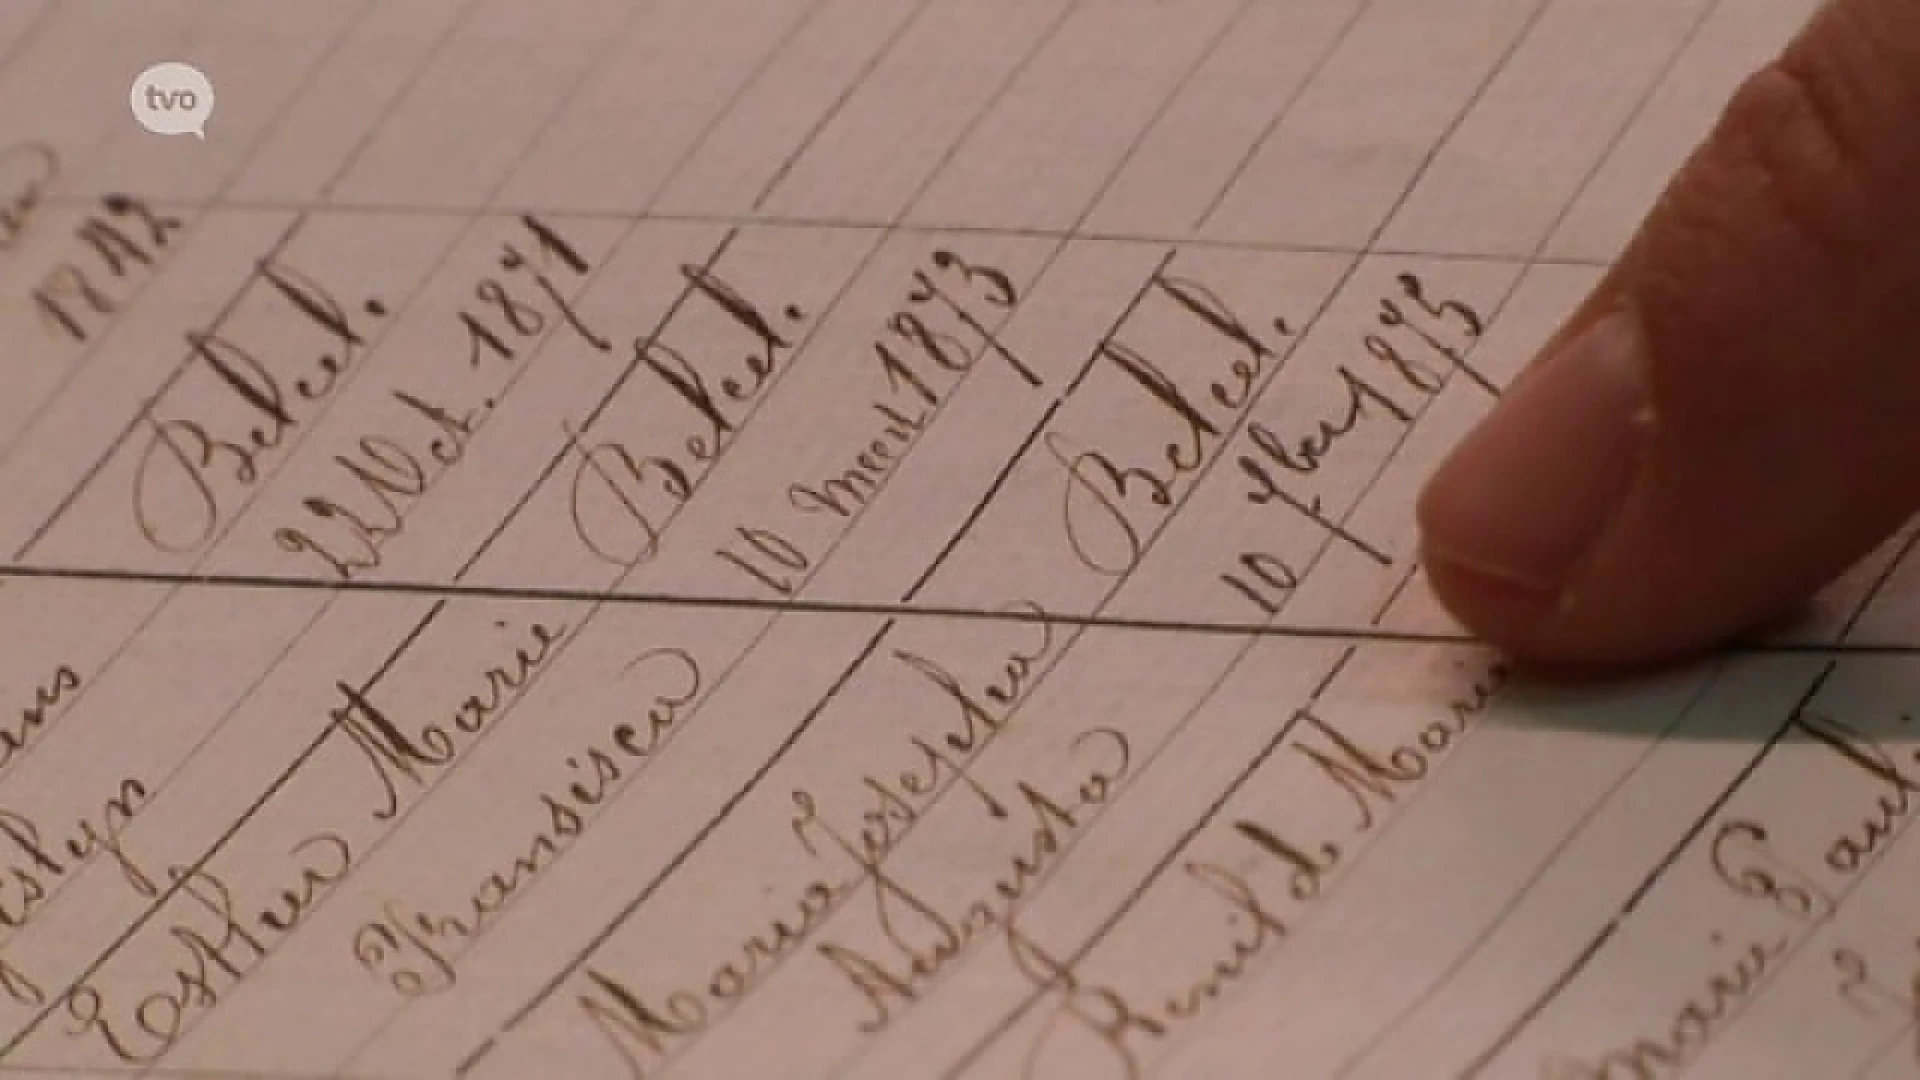 tvo
1842
Belcel.
22 Oct. 1871
Belcel.
10 Meert 1873
Belcel.
10 7ber 1875
Esther Marie
Fransisca
Maria Josepha
Augusta
Remil de Marie
Marie Paul